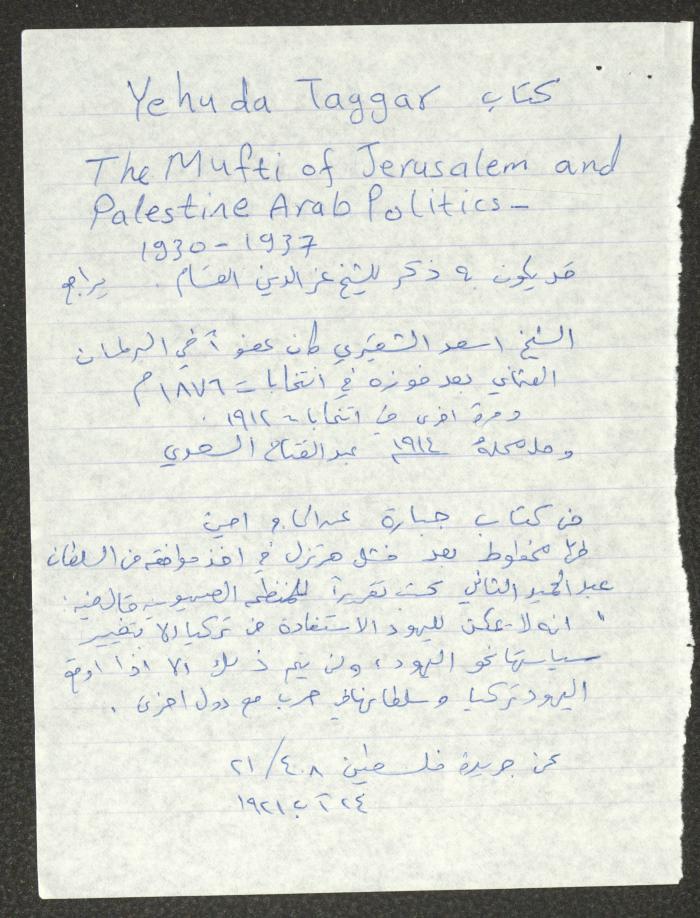 كتاب Yehuda Taggar
The Mufti of Jerusalem and
Palestine Arab Politics-
1930-1937
قد يكون به ذكر للشيخ عز الدين القسام . يراجع
الشيخ اسعد الشقيري كان عضوآ في البرلمان
العثماني بعد فوزه في انتخابات ١٨٧٦م
ومرة اخرى في انتخابات ١٩١٢ .
وحل محله ١٩١٤ عبد الفتاح السعدي
من كتاب جبارة عن الحاج امين
بعد فشل هرتزل في اخذ موافقة من السلطان
عبد الحميد الثاني كتب تقريرآ للمنظمة الصهيونية قال فيه:
" انه لا يمكن لليهود الاستفادة من تركيا الا بتغيير
سياستها نحو اليهود، ولن يتم ذلك الا اذا اوقع
اليهود تركيا وسلطانها في حرب مع دول اخرى .
عن جريدة فلسطين ٤٠٨/ ٢١
٢٤ آب ١٩٢١